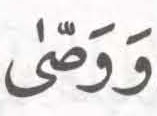 وَوَصّٰى